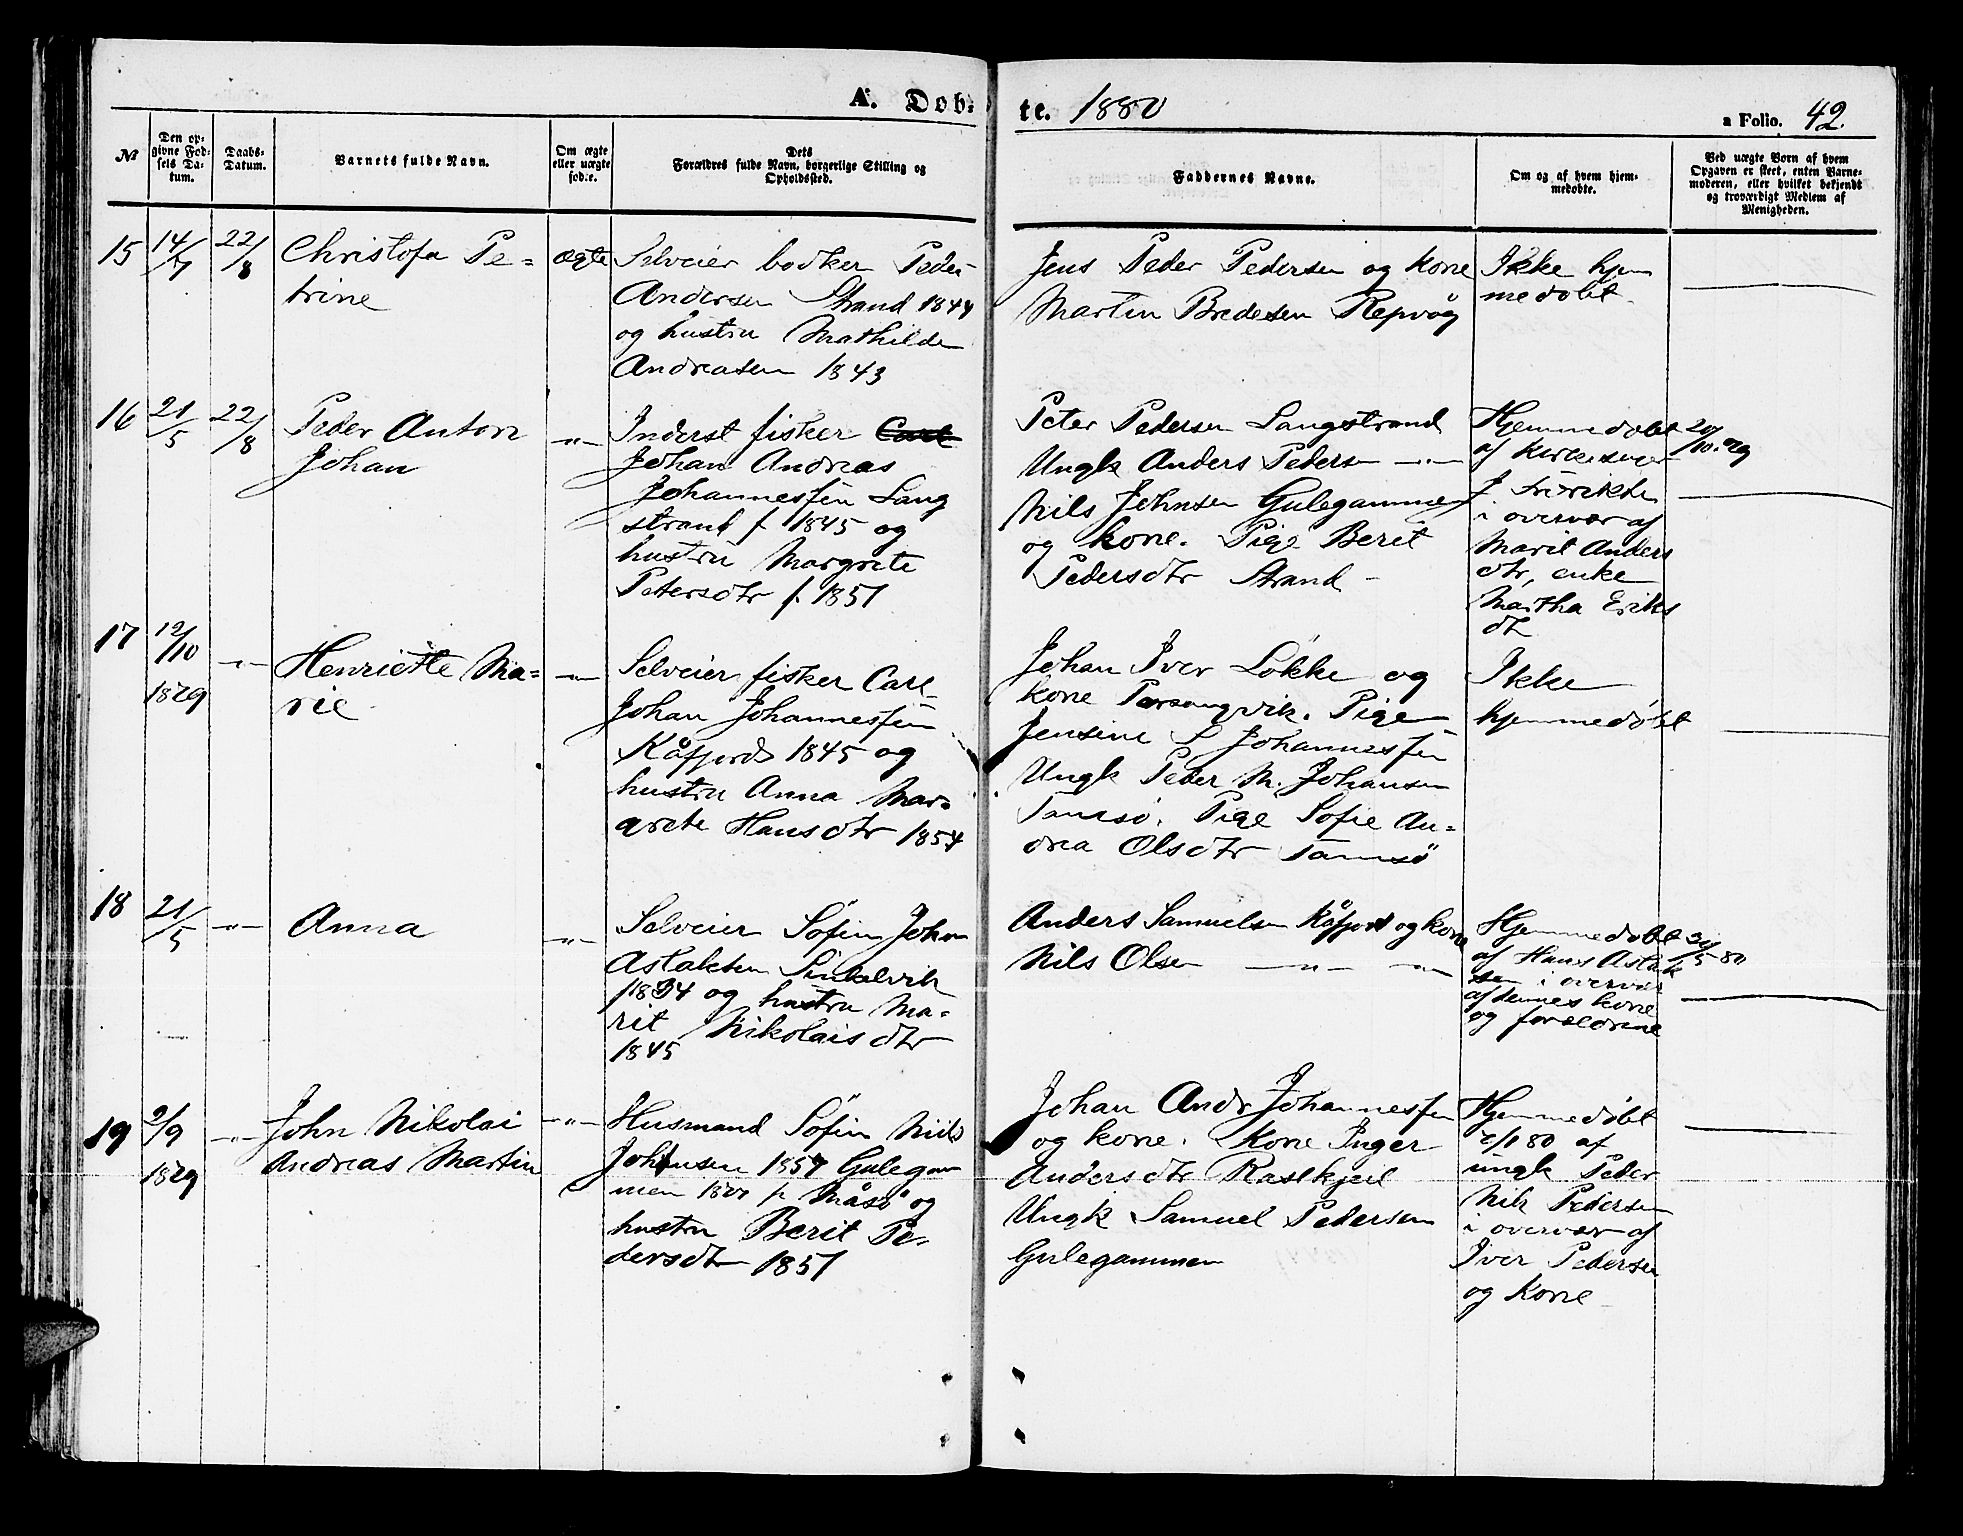 A. Døb-
te. 1880
a Folio. 42.
No
Den op-
givne Fød-
sels Da-
tum.
Daabs-
Datum.
Barnets fulde Navn.
Om ægte
eller uægte
født.
Dets
Forældres fulde Navn, borgerlige Stilling og
Opholdssted.
Faddernes Navne.
Om og af hvem hjem-
medøbt.
Ved uægte Børn af hvem
Opgaven er skeet, enten Barne-
moderen, eller hvilket bekjendt
og troværdigt Medlem af
Menigheden.
15
14/7
22/8
Christofa Pe-
trine
ægte
Selveier bødker Peder
Andersen Strand 1844
og hustru Mathilde
Andreasen 1843
Jens Peder Pedersen og kone
Martin Bredesen Repvög
Ikke hjem
medöbt.
16
21/5
22/8
Peder Anton
Johan
-"-
Inderst fisker Carl
Johan Andreas
Johannesen Lang
strand f 1845 og
hustru Margrete
Petersdtr f. 1851
Peter Pedersen Langstrand
Ungk Anders Pedersen -"-
Nils Johnsen Gulegammen
og kone. Pige Berit
Pedersdtr Strand -
Hjemmedöbt
af kirkesanger
i overvær af
Marit Anders
dtr, enke
Martha Eriks
dt
17
12/10
1879
-"-
Henriette Ma-
rie
-"-
Selveier fisker Carl
Johan Johannesen
Kåfjord 1845 og
hustru Anna Mar-
grete Hansdtr 1854
Johan Iver Lökke og
kone Porsangvik. Pige
Jensine S Johannesen
Ungk Peder M. Johansen
Tamsö. Pige Sofie An-
drea Olsdtr Tamsö
Ikke
hjemmedöbt
18
21/5
-"-
Anna
-"-
Selveier Söfin John
Aslaksen
1834 og hustru Ma-
rit Nikolaisdtr
1845
Anders Samuelsen Kåfjord og kone
Nils Olsen -"- -"-
Hjemmedöbt 30/5 80
af Hans Aslak
sen i overvær
af dennes kone
og forældrene
19
2/9
1879
-"-
John Nikolai
Andreas Martin
-"-
Husmand Söfin Nils
Johnsen 1857 Gulegam
men
hustru Berit Pe-
dersdtr 1851
Johan Andr Johannesen
og kone. Kone Inger
Andersdtr
Ungk Samuel Pedersen
Gulegammen
Hjemmedöbt
af
ungk Peder
Nils Pedersen
i overvær af
Iver Pedersen
og Kone